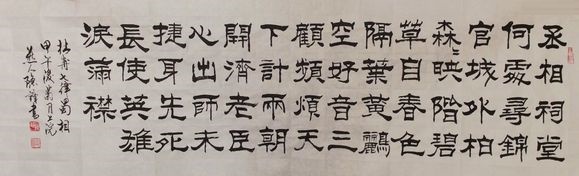 丞相祠堂
何處尋錦
官城外柏
森〻映階碧
草自春色
隔葉黃鸝
空好音三
顧頻煩天
下計兩朝
開濟老臣
心出師未
捷身先死
長使英雄
淚滿襟
杜甫七律蜀相
甲午後菊月上浣
燕人張書